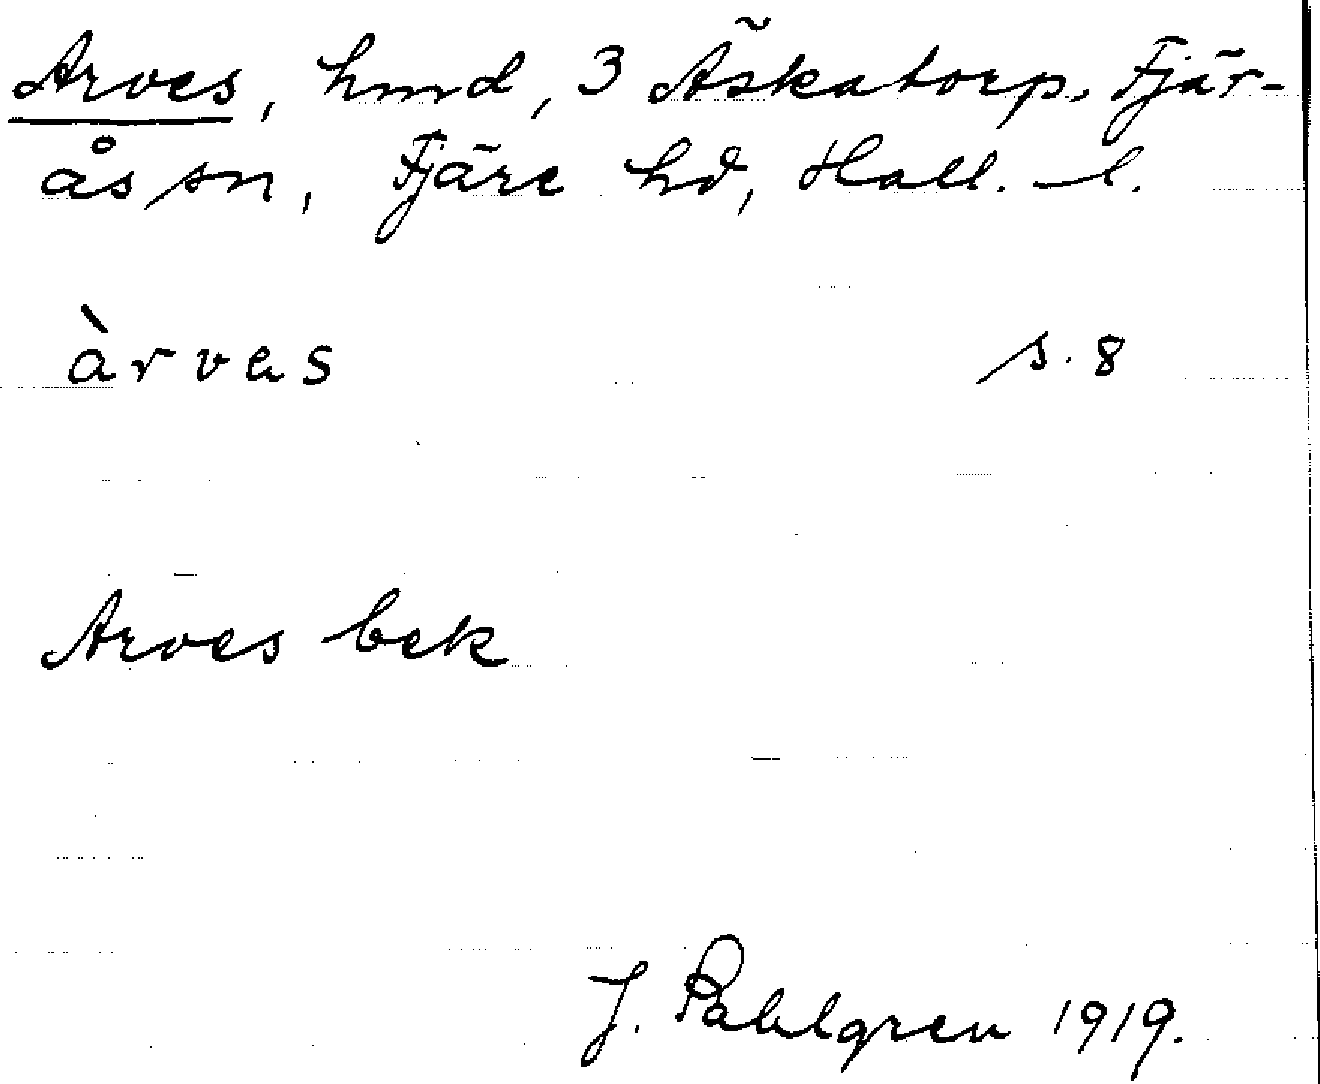 Arves, hmd, 3 Äskatorp, Fjär-
ås sn, Fjäre hd, Hall. l.
àrvas s. 8
Arves bek
J. Pahlgren 1919.